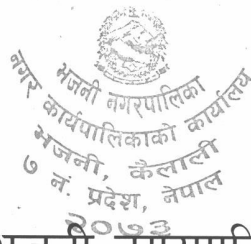 भजनी नगरपालिका
नगर कार्यपालिकाको कार्यालय
भजनी, कैलाली
७ नं. प्रदेश, नेपाल
२०७३